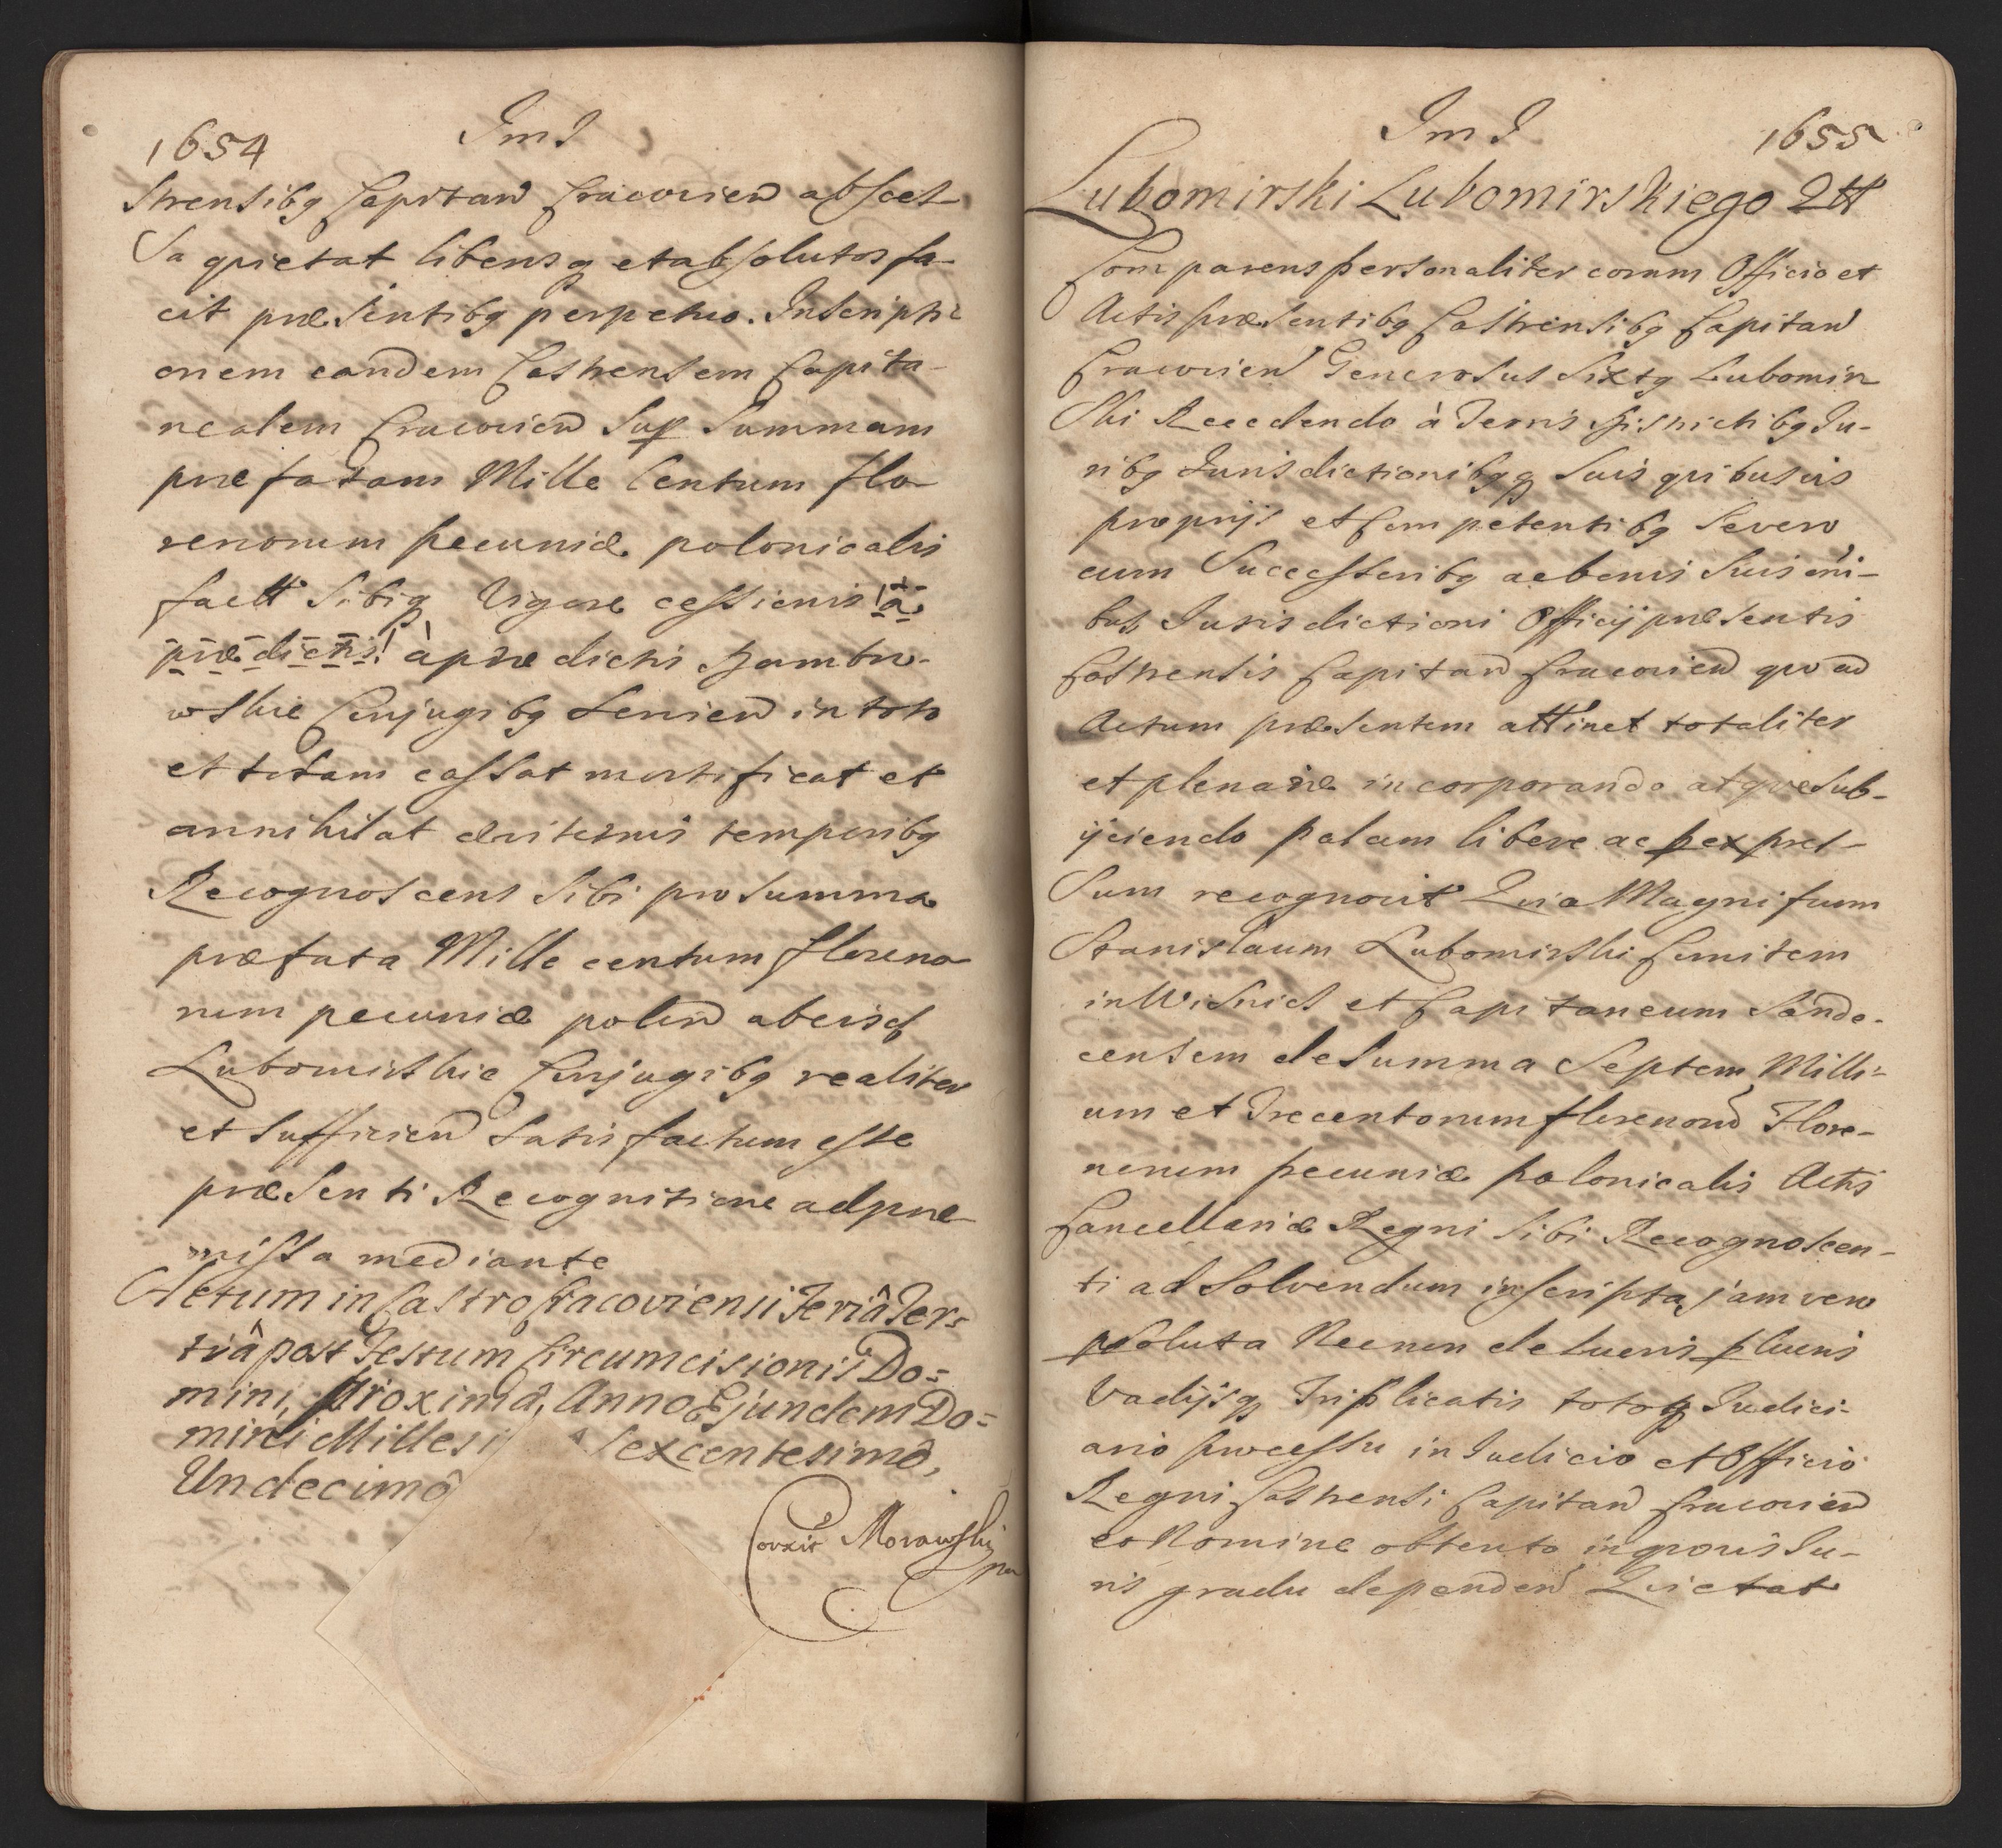 1654
Im I
strensibq Capitan Cracovien absces
sa quietat libensq et absolutos fa-
cit præsentibq perpetuo. Inscripti
onem eandem Castrensem Capita-
nealem Cracovien sup summam
præfatam Mille Centum flo
renorum pecuniæ polonicalis
factt sibiq Vigore cessionis !à
prædictis! à prædictis Dambro-
wskie Conjugibq servien in toto
et totam cassat mortificat et
annihilat æviternis temporibq
Recognoscens sibi pro summa
præfata Mille centum floreno
rum pecuniæ polon ab eisd
Lubomirskie Conjugibq realiter
et sufficien satisfactum esse
præsenti Recognitione ad præ
missa mediante
Actum in Castro Cracoviensi Feriâ Ter=
tiâ post Festum Circumcisionis Do=
mini, proximâ, Anno Ejundem Do=
mini Millesi sexcentesimô,
Undecimô
Corxit Morawski
mp
Im I
1655
Lubomirski Lubomirskiego Qtt
Comparens personaliter coram Officio et
Actis præsentibq Castrensibq Capitan
Cracovien Generosus Sixtq Lubomir
ski Recedendo à Terris Districtibq Ju-
ribq Jurisdictionibqq suis quibusvis
proprijs et Competentibq Se vero
cum Successoribq ac bonis suis omi-
bus Jurisdictioni Officij præsentis
Castrensis Capitan Cracovien quoad
Actum præsentem attinet totaliter
et plenarie incorporando atque sub-
ijciendo palam libere ac p expres-
sum recognovit Quia Magnificum
Stanislaum Lubomirski Comitem
in Wisnicz et Capitaneum Sande-
censem de summa Septem Milli-
um et Trecentorum florenorum Flore-
norum pecuniæ polonicalis Actis
Cancellariæ Regni sibi Recognoscen-
ti ad solvendum inscripta jam vero
psoluta Necnon de lucris plucris
Vadijsq Triplicatis totoq Judici-
ario processu in Judicio et Officio
Regni Castrensi Capitan Cracovien
eo Nomine obtento in quovis Ju-
ris gradu dependen Quietat